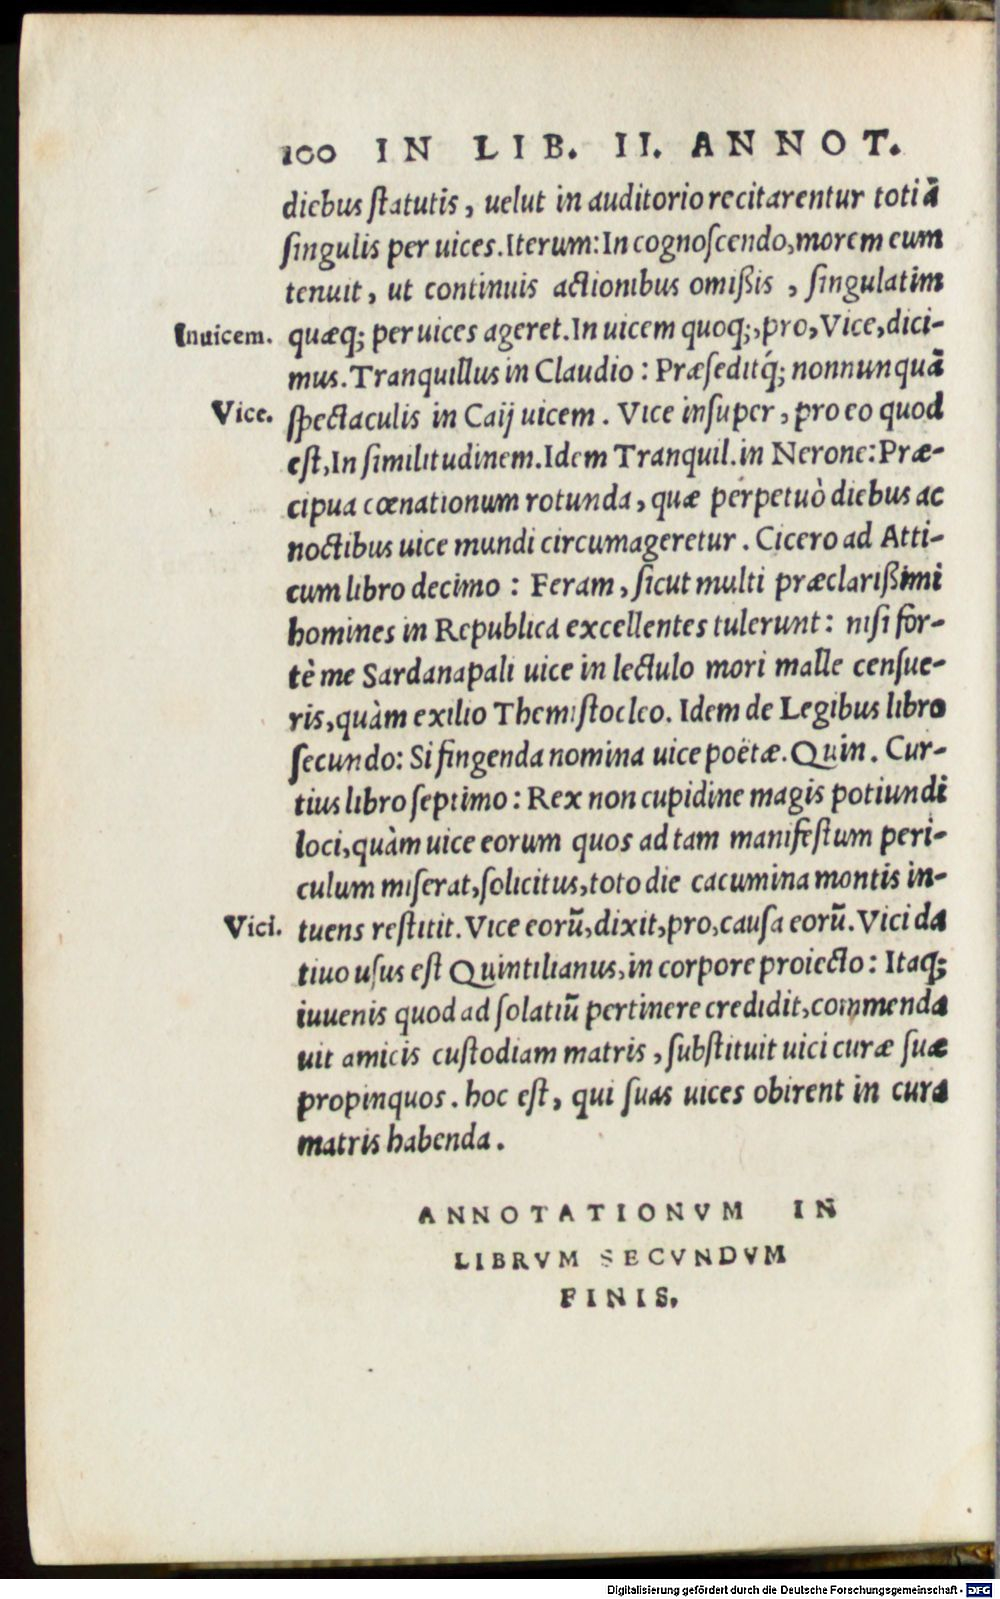 100 IN LIB. II. ANNOT.
diebus ſtatutis, uelut in auditorio recitarentur toti à
ſingulis per uices. Iterum: In cognoſcendo, morem eum
tenuit, ut continuis actionibus omißis, ſingulatim
Inuicem. quæq; per uices ageret. In uicem quoq;, pro, Vice, dici-
mus. Tranquillus in Claudio: Præſeditq́; nonnunquā
Vice. ſpectaculis in Caij uicem. Vice inſuper, pro eo quod
eſt, In ſimilitudinem. Idem Tranquil. in Nerone: Præ-
cipua cœnationum rotunda, quæ perpetuò diebus ac
noctibus uice mundi circumageretur. Cicero ad Atti-
cum libro decimo: Feram, ſicut multi præclarißimi
homines in Republica excellentes tulerunt: niſi for-
tè me Sardanapali uice in lectulo mori malle cenſue-
ris, quàm exilio Themiſtocleo. Idem de Legibus libro
ſecundo: Si fingenda nomina uice poëtæ. Quin. Cur-
tius libro ſeptimo: Rex non cupidine magis potiundi
loci, quàm uice eorum quos ad tam manifeſtum peri-
culum miſerat, ſolicitus, toto die cacumina montis in-
Vici. tuens reſtitit. Vice eorū, dixit, pro, cauſa eorū. Vici da
tiuo uſus eſt Quintilianus, in corpore proiecto: Itaq;
iuuenis quod ad ſolatiū pertinere credidit, commenda
uit amicis cuſtodiam matris, ſubſtituit uici curæ ſuæ
propinquos. hoc eſt, qui ſuas uices obirent in cura
matris habenda.
ANNOTATIONVM IN
LIBRVM SECVNDVM
FINIS.
Digitalisierung gefördert durch die Deutsche Forschungsgemeinschaft - DFG